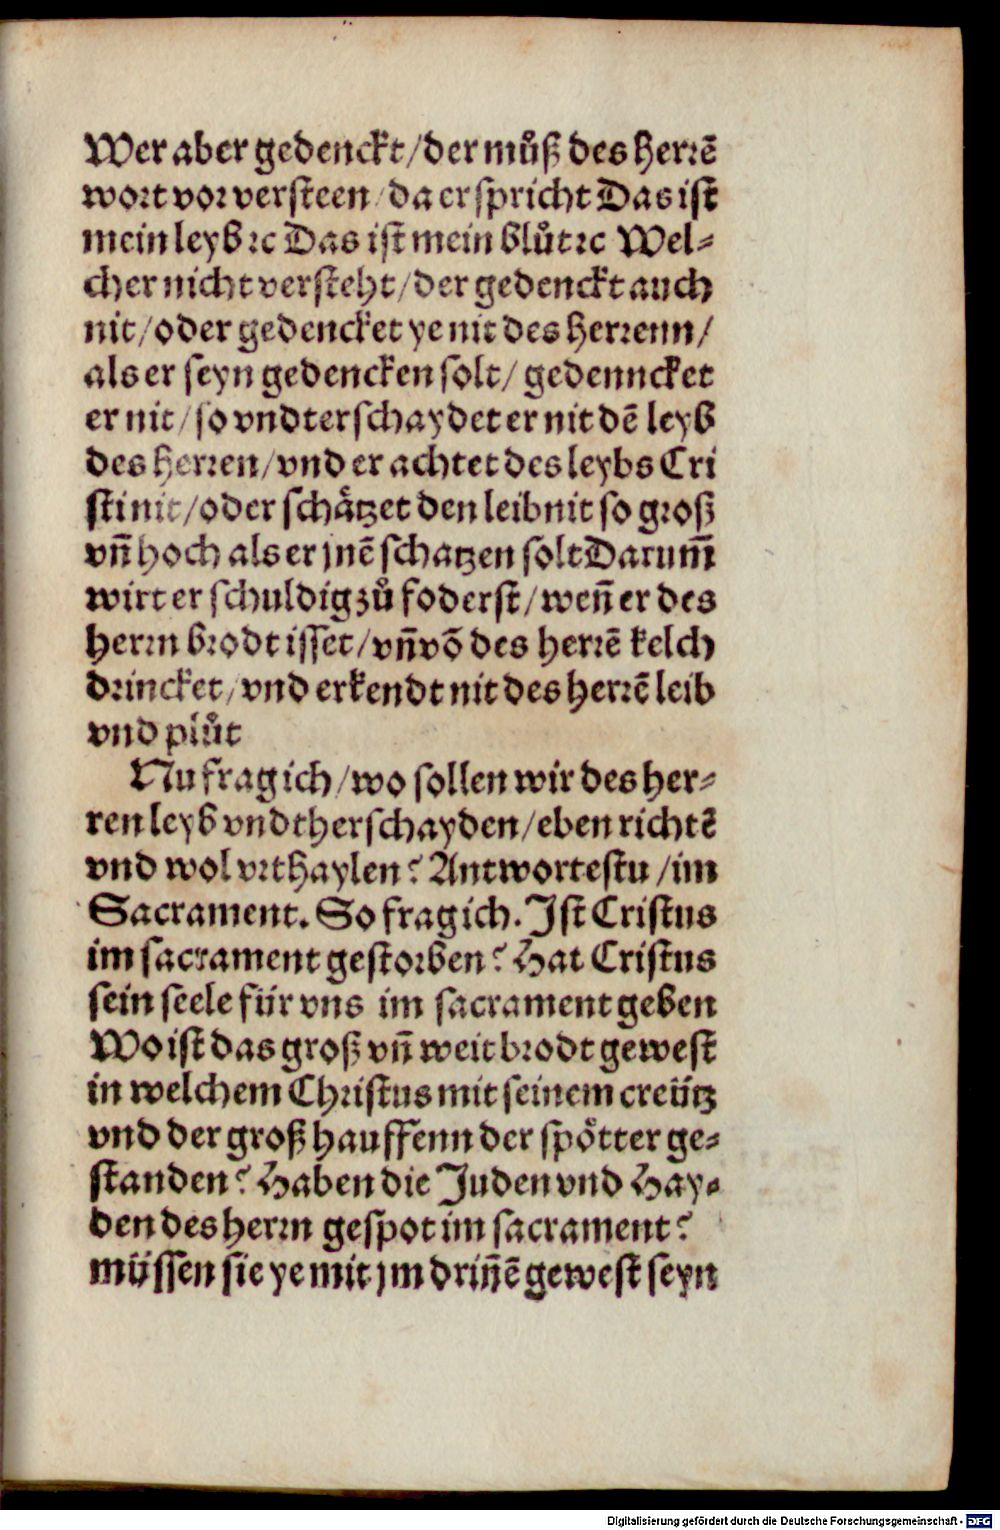 Wer aber gedenckt/der můß des Herrē
wort vor versteen/da er spricht Das ist
mein leyb ꝛc Das ist mein blůt ꝛc Wel⸗
cher nicht versteht/der gedenckt auch
nit/oder gedencket ye nit des Herrenn/
als er seyn gedencken solt/ gedenncket
er nit/so vndterschaydet er nit dē leyb
des Herren/vnd er achtet des leybs Cri
sti nit/oder schåtzet den leib nit so groß
vn̄ hoch als er jnē schatzen solt Darum̄
wirt er schuldig zů foderst/wen̄ er des
herrn brodt isset/vn̄ vō des herrē kelch
drincket/vnd erkendt nit des herrē leib
vnd plůt
Nu frag ich/wo sollen wir des her⸗
ren leyb vndtherschayden/eben richtē
vnd wol vrthaylen? Antwortestu/im
Sacrament. So frag ich. Ist Cristus
im sacrament gestorben? Hat Cristus
sein seele für vns im sacrament geben
Wo ist das groß vn̄ weit brodt gewest
in welchem Christus mit seinem creütz
vnd der groß hauffenn der spötter ge⸗
standen? Haben die Juden vnd Hay⸗
den des herrn gespot im sacrament?
müssen sie ye mit jm drin̄ē gewest seyn
Digitalisierung gefördert durch die Deutsche Forschungsgemeinschaft - DFG